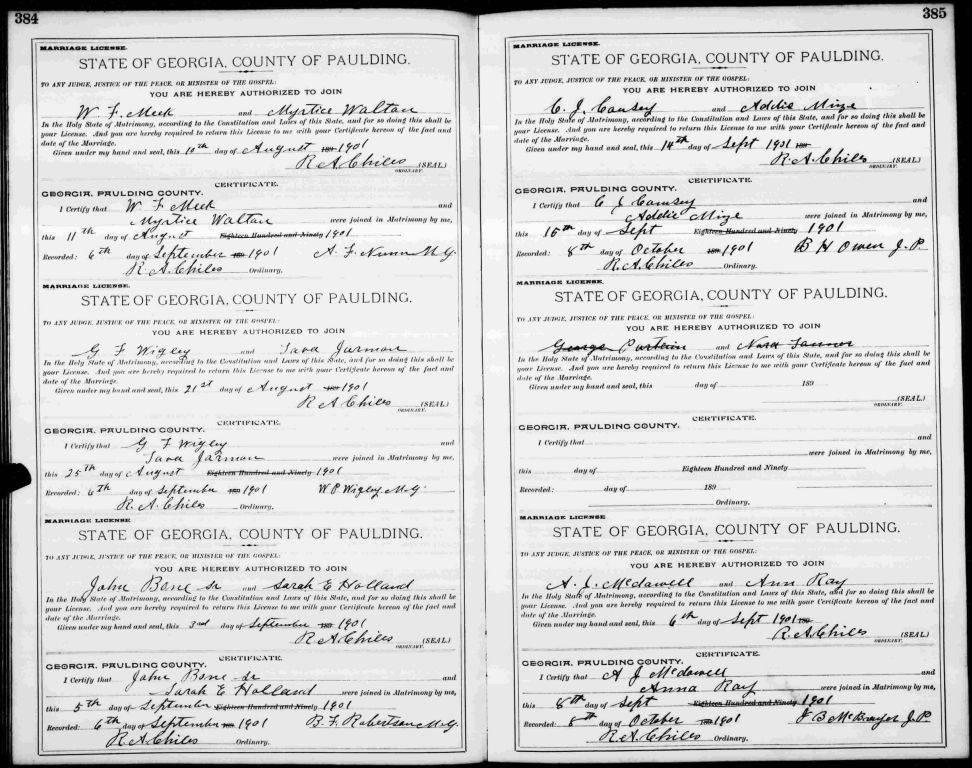 384
MARRIAGE LICENSE.
STATE OF GEORGIA, COUNTY OF PAULDING.
TO ANY JUDGE, JUSTICE OF THE PEACE, OR MINISTER OF THE GOSPEL:
YOU ARE HEREBY AUTHORIZED TO JOIN
W. F. Meek and Myrtice Waltan
In the Holy State of Matrimony, according to the Constitution and Laws of this State, and for so doing this shall be
your License. And you are hereby required to return this License to me with your Certificate hereon of the fact and
date of the Marriage.
Given under my hand and seal, this 10th day of August 189 1901
R. A. Chiles (SEAL)
ORDINARY.
CERTIFICATE.
GEORGIA, PAULDING COUNTY.
I Certify that W F Meek and
Myrtice Waltan were joined in Matrimony by me,
this 11th day of August Eighteen Hundred and Ninety 1901
Recorded: 6th day of September 189 1901 A. F. Nunn M.G.
R. A. Chiles Ordinary.
MARRIAGE LICENSE.
STATE OF GEORGIA, COUNTY OF PAULDING.
TO ANY JUDGE, JUSTICE OF THE PEACE, OR MINISTER OF THE GOSPEL:
YOU ARE HEREBY AUTHORIZED TO JOIN
G F Wigley and Sara Jarman
In the Holy State of Matrimony, according to the Constitution and Laws of this State, and for so doing this shall be
your License. And you are hereby required to return this License to me with your Certificate hereon of the fact and
date of the Marriage.
Given under my hand and seal, this 21st day of August 189 1901
R A Chiles (SEAL)
ORDINARY.
CERTIFICATE.
GEORGIA, PAULDING COUNTY.
I Certify that G F Wigley and
Sara Jarman were joined in Matrimony by me,
this 25th day of August Eighteen Hundred and Ninety 1901
Recorded: 6th day of September 189 1901 W P Wigley M.G.
R. A. Chiles Ordinary.
MARRIAGE LICENSE
STATE OF GEORGIA, COUNTY OF PAULDING.
TO ANY JUDGE, JUSTICE OF THE PEACE, OR MINISTER OF THE GOSPEL:
YOU ARE HEREBY AUTHORIZED TO JOIN
John Bone Sr and Sarah E Holland
In the Holy State of Matrimony, according to the Constitution and Laws of this State, and for so doing this shall be
your License. And you are hereby required to return this License to me with your Certificate hereon of the fact and
date of the Marriage.
Given under my hand and seal, this 3rd day of September 189 1901
R A Chiles (SEAL)
ORDINARY.
CERTIFICATE.
GEORGIA, PAULDING COUNTY.
I Certify that John Bone Sr and
Sarah E Holland were joined in Matrimony by me,
this 5th day of September Eighteen Hundred and Ninety 1901
Recorded: 6th day of September 189 1901 B. F. Robertson M.G.
R A. Chiles Ordinary.
385
MARRIAGE LICENSE.
STATE OF GEORGIA, COUNTY OF PAULDING.
TO ANY JUDGE, JUSTICE OF THE PEACE, OR MINISTER OF THE GOSPEL:
YOU ARE HEREBY AUTHORIZED TO JOIN
C. J. Causey and Addie Mize
In the Holy State of Matrimony, according to the Constitution and Laws of this State, and for so doing this shall be
your License. And you are hereby required to return this License to me with your Certificate hereon of the fact and
date of the Marriage.
Given under my hand and seal, this 14th day of Sept 1901 189
R A. Chiles (SEAL)
ORDINARY.
CERTIFICATE.
GEORGIA, PAULDING COUNTY.
I Certify that C J Causey and
Addie Mize were joined in Matrimony by me,
this 15th day of Sept Eighteen Hundred and Ninety 1901
Recorded: 8th day of October 189 1901 B H Owen J.P.
R. A. Chiles Ordinary.
MARRIAGE LICENSE.
STATE OF GEORGIA, COUNTY OF PAULDING.
TO ANY JUDGE, JUSTICE OF THE PEACE, OR MINISTER OF THE GOSPEL:
YOU ARE HEREBY AUTHORIZED TO JOIN
George Partain and Nora
In the Holy State of Matrimony, according to the Constitution and Laws of this State, and for so doing this shall be
your License. And you are hereby required to return this License to me with your Certificate hereon of the fact and
date of the Marriage.
Given under my hand and seal, this day of 189
(SEAL)
ORDINARY.
CERTIFICATE.
GEORGIA, PAULDING COUNTY.
I Certify that and
were joined in Matrimony by me,
this day of Eighteen Hundred and Ninety
Recorded: day of 189
Ordinary.
MARRIAGE LICENSE
STATE OF GEORGIA, COUNTY OF PAULDING.
TO ANY JUDGE, JUSTICE OF THE PEACE, OR MINISTER OF THE GOSPEL:
YOU ARE HEREBY AUTHORIZED TO JOIN
A. J. McDowell and Ann Ray
In the Holy State of Matrimony, according to the Constitution and Laws of this State, and for so doing this shall be
your License. And you are hereby required to return this License to me with your Certificate hereon of the fact and
date of the Marriage.
Given under my hand and seal, this 6th day of Sept 1901 189
R. A. Chiles (SEAL)
ORDINARY.
CERTIFICATE.
GEORGIA, PAULDING COUNTY.
I Certify that A J McDowell and
Anna Ray were joined in Matrimony by me,
this 8th day of Sept Eighteen Hundred and Ninety 1901
Recorded: 8th day of October 189 1901 J B McBrayer J.P.
R. A. Chiles Ordinary.